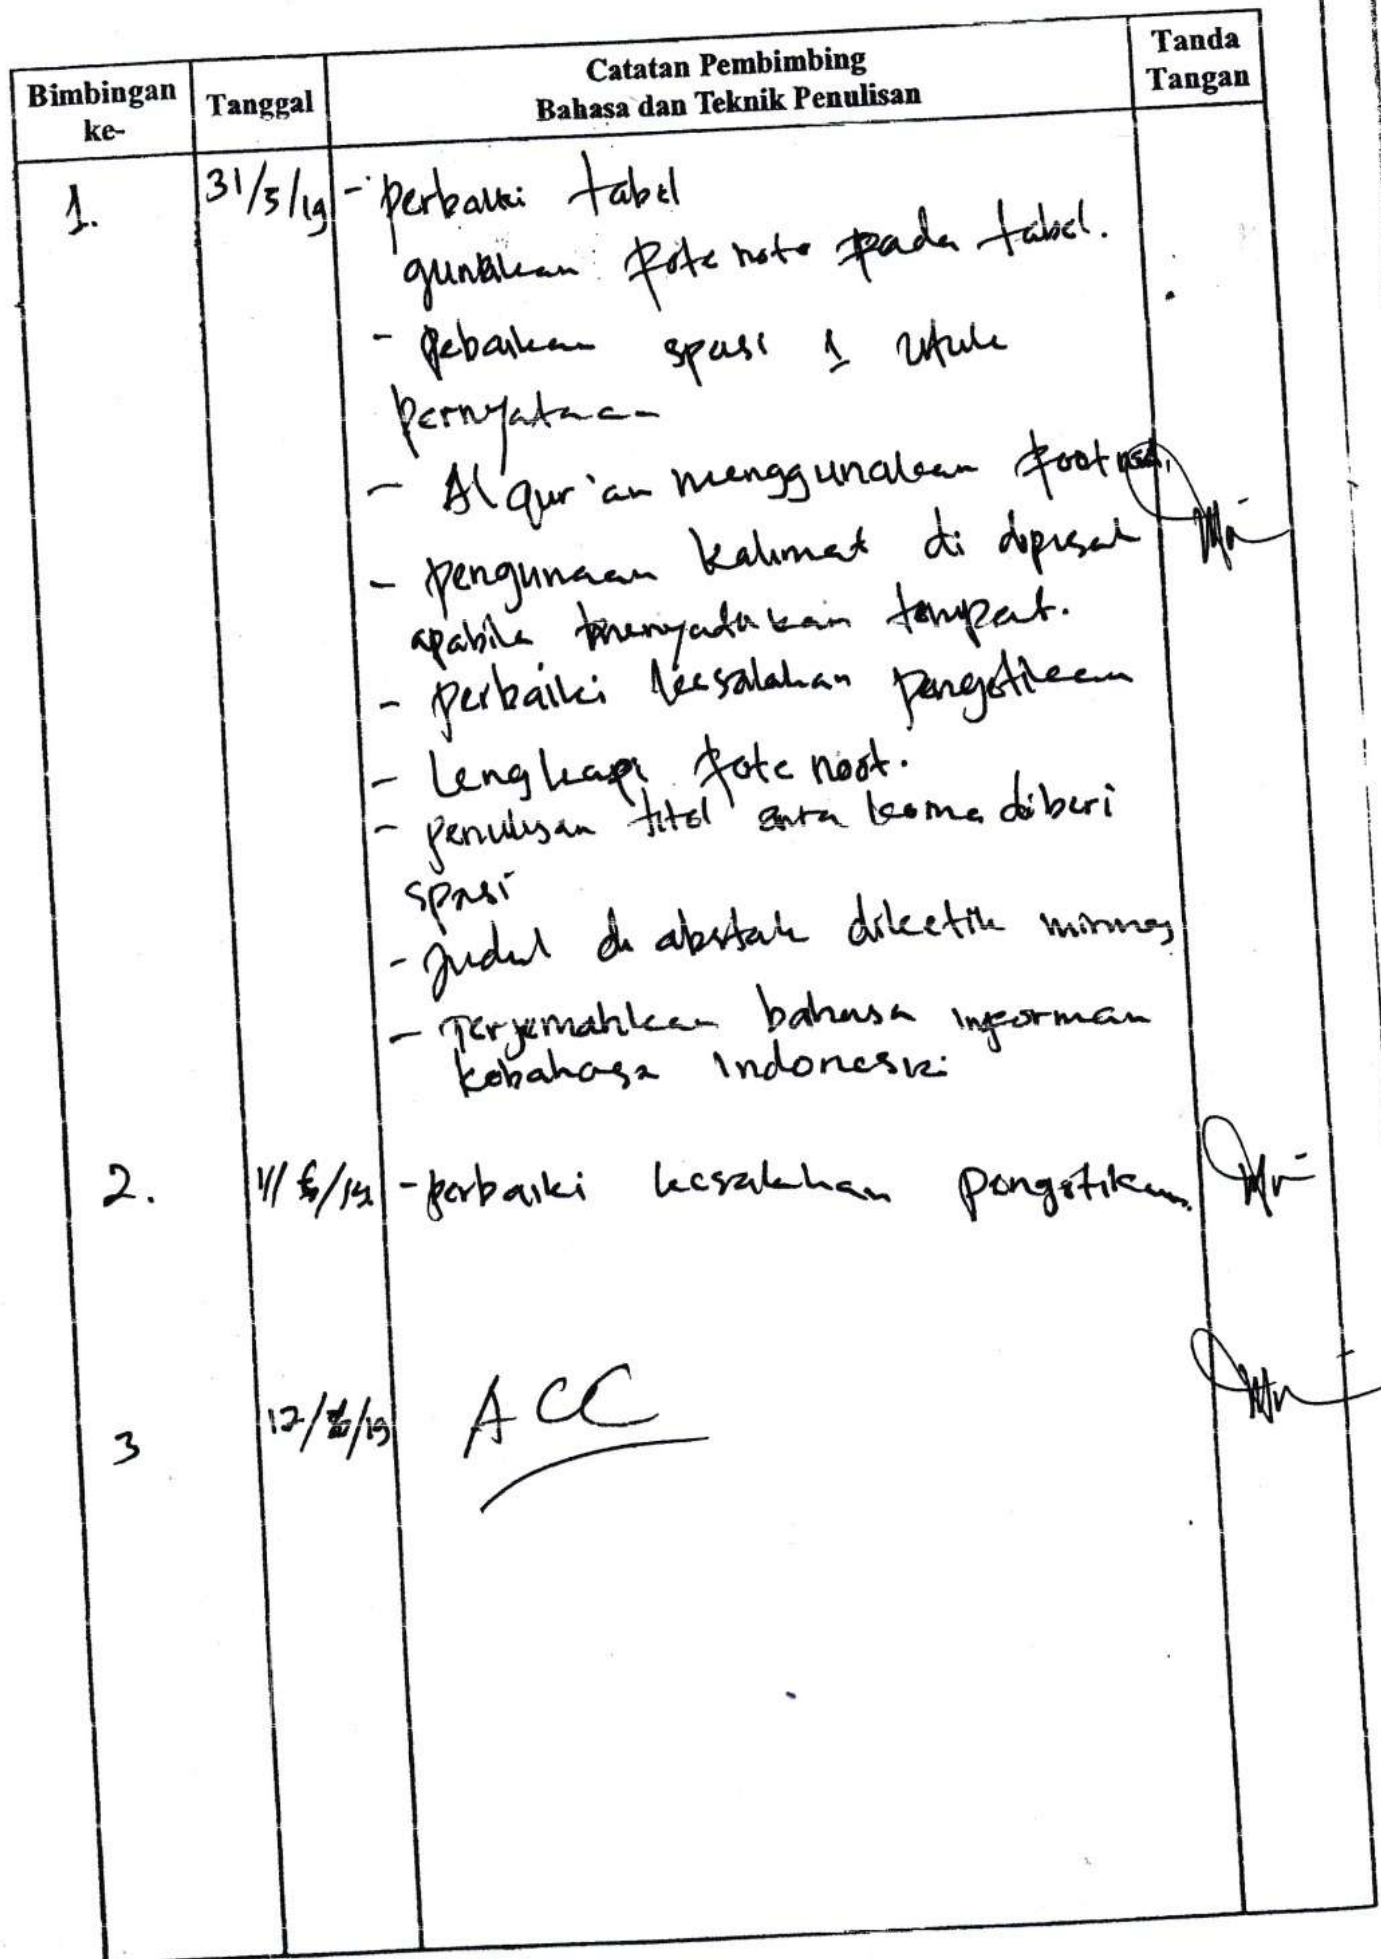 Bimbingan ke-
Tanggal
Catatan Pembimbing
Bahasa dan Teknik Penulisan
Tanda Tangan
1.
31/5/19
- perbaiki tabel
gunakan fote note pada tabel.
- spasi 1
pernyataan
- Al qur'an menggunakan
- pengunaan kalimat di dipisah
apabila menyatakan tempat.
- perbaiki kesalahan pengetikan
- Lengkapi fote noot.
- penulisan titel koma diberi
spasi
- judul di abstak diketik miring
- Terjemahkan bahasa informan
kebahasa Indonesia
2.
- perbaiki kesalahan pengetikan.
3
ACC